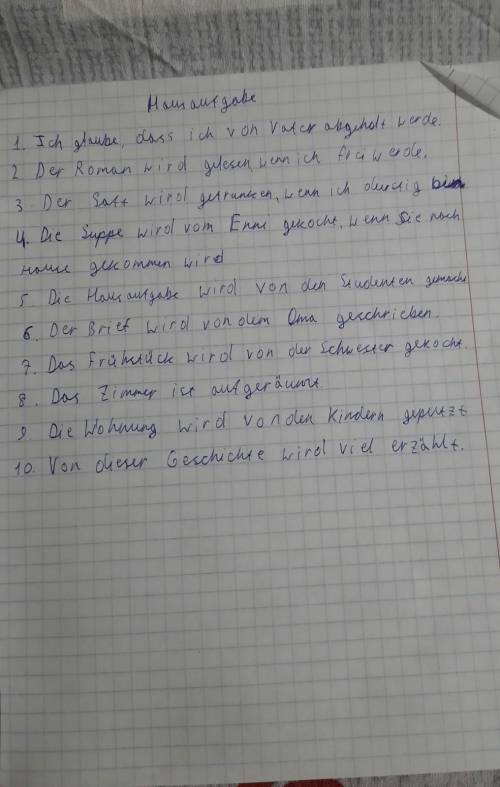 Hausaufgabe
1. Ich glaube, dass ich von Vater abgeholt werde.
2 Der Roman wird gelesen, wenn ich frei werde.
3. Der Saft wird getrunken, wenn ich durstig bin
4. Die Suppe wird vom Enni gekocht, wenn Sie nach
Hause gekommen wird
5. Die Hausaufgabe wird von den Studenten gemacht
6. Der Brief wird von dem Oma geschrieben.
7. Das Frühstück wird von der Schwester gekocht.
8. Das Zimmer ist aufgeräumt
9. Die Wohnung wird von den Kindern geputzt
10. Von dieser Geschichte wird viel erzählt.